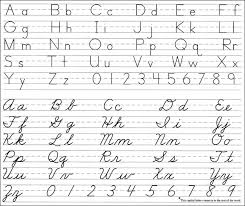 Aa Bb Cc Dd Ee Ff
Gg Hh Ii Jj Kk Ll
Mm Nn Oo Pp Qq Rr
Ss Tt Uu Vv Ww Xx
Yy Zz 0 1 2 3 4 5 6 7 8 9
Aa Bb Cc Dd Ee
Ff Gg Hh Ii Jj
Kk Ll Mm Nn Oo
Pp Qq Rr Ss Tt
Uu Vv Ww Xx Yy
Zz 0 1 2 3 4 5 6 7 8 9